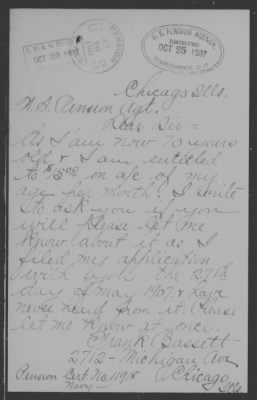 U. S. PENSION AGENCY,
OCT 25 1907
WASHINGTON, D.C.
OCT 25 1907
PENSION
Chicago Ills.
U. S. Pension Agt.
Dear Sir =
As I am now 70 years
old & I am entitled
to $15 00 on a/c of my
age per month. I write
to ask you if you
will please let me
know about it as I
filed my application
with you the 27th
day of May 1907. & have
never heard from it. Please
let me know at once.
Frank Bassett
2712 - Michigan Ave
Chicago
Ills
Pension Cert. No. 11918
Navy -